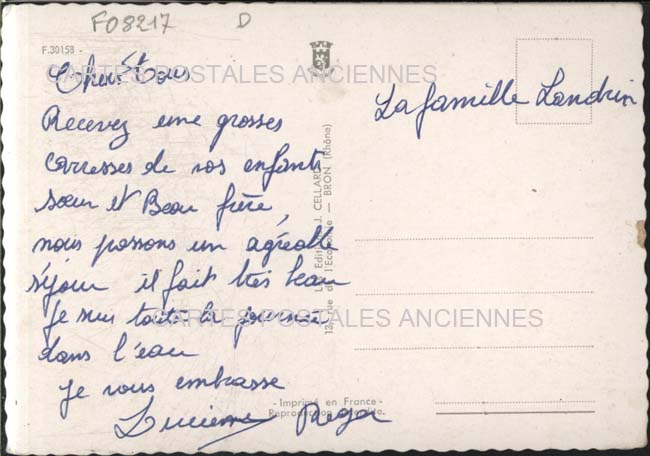 F08217 D
F.30158 -
CARTES POSTALES ANCIENNES
Chers Tous
Recevez une grosses
carresses de vos enfants
sœur et Beau frère
nous passons un agréable
séjour il fait très beau
je suis toute la journée
dans l'eau
je vous embrasse
Lucienne Roger
La famille Landrin
J. CELLARD
BRON (Rhône)
CARTES POSTALES ANCIENNES
- Imprimé en France -
Reproduction